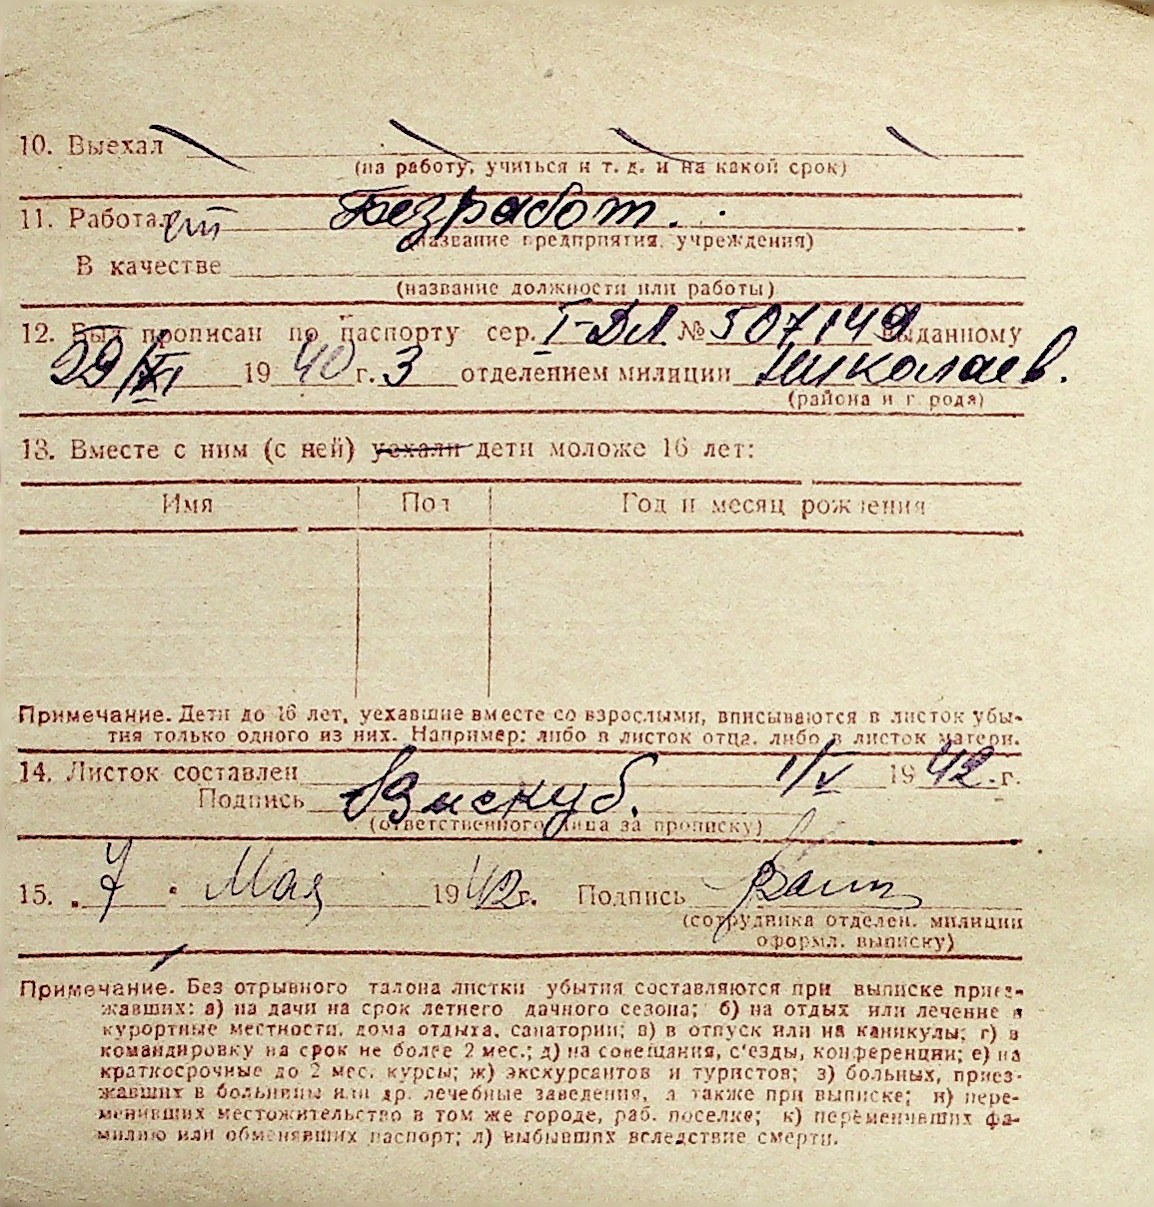 10. Выехал
(на работу, учиться и т. д. и на какой срок)
11. Работал Безработ.
(название предприятия, учреждения)
В качестве
(название должности или работы)
12. Был прописан по паспорту сер. I-ДЛ № 507149 выданному
29/XI 1940 г. 3 отделением милиции Николаев.
(района и города)
13. Вместе с ним (с ней) уехали дети моложе 16 лет:
Имя Пол Год и месяц рождения
Примечание. Дети до 16 лет, уехавшие вместе со взрослыми, вписываются в листок убы-
тия только одного из них. Например: либо в листок отца, либо в листок матери.
14. Листок составлен 1/V 1942 г.
Подпись
(ответственного лица за прописку)
15. „7 " Мая 1942 г. Подпись
(сотрудника отделен. милиции
оформл. выписку)
Примечание. Без отрывного талона листки убытия составляются при выписке приез-
жавших: а) на дачи на срок летнего дачного сезона; б) на отдых или лечение в
курортные местности, дома отдыха, санатории; в) в отпуск или на каникулы; г) в
командировку на срок не более 2 мес.; д) на совещания, с'езды, конференции; е) на
краткосрочные до 2 мес. курсы; ж) экскурсантов и туристов; з) больных, приез-
жавших в больницы или др. лечебные заведения, а также при выписке; и) пере-
менивших местожительство в том же городе, раб. поселке; к) переменивших фа-
милию или обменявших паспорт; л) выбывших вследствие смерти.